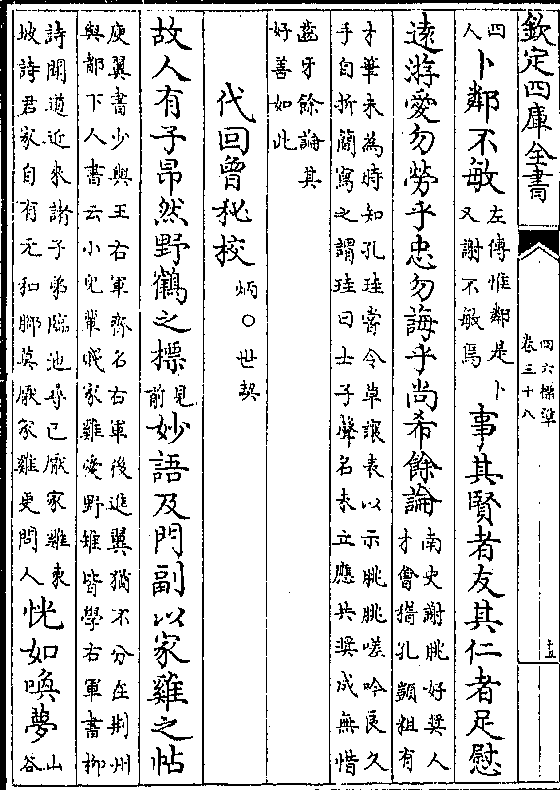 欽定四庫全書
四六標準
卷三十八
五
四人卜鄰不敏左傳惟鄰是卜又謝不敏焉事其賢者友其仁者足慰
遠游愛勿勞乎忠勿誨乎尚希餘論南史謝朓好奬人才會稽孔顗粗有
才筆未為時知孔珪嘗令草讓表以示朓朓嗟吟良久手自折簡寫之謂珪曰士子聲名未立應共奬成無惜
齒牙餘論其好善如此
代回曾秘校炳○世契
故人有子昂然野鶴之標見前妙語及門副以家雞之帖
庾翼書少與王右軍齊名右軍後進翼猶不分在荆州與都下人書云小兒輩賤家雞愛野雉皆學右軍書柳
詩聞道近來諸子弟臨池尋已厭家雞東坡詩君家自有元和脚莫厭家雞更問人恍如喚夢山谷